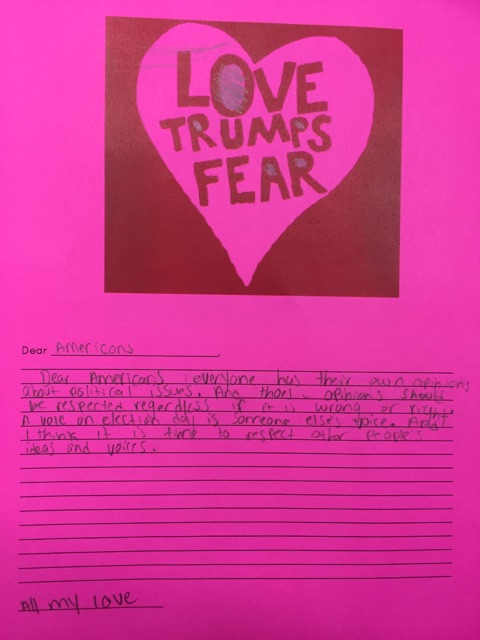 LOVE
TRUMPS
FEAR
Dear Americans
Dear Americans, everyone has their own opinions
about political issues. And thoes opinions should
be respected regardless if it is wrong or right.
A vote on election day is someone elses voice. And
I think it is time to respect other people's
ideas and voices.
All my love